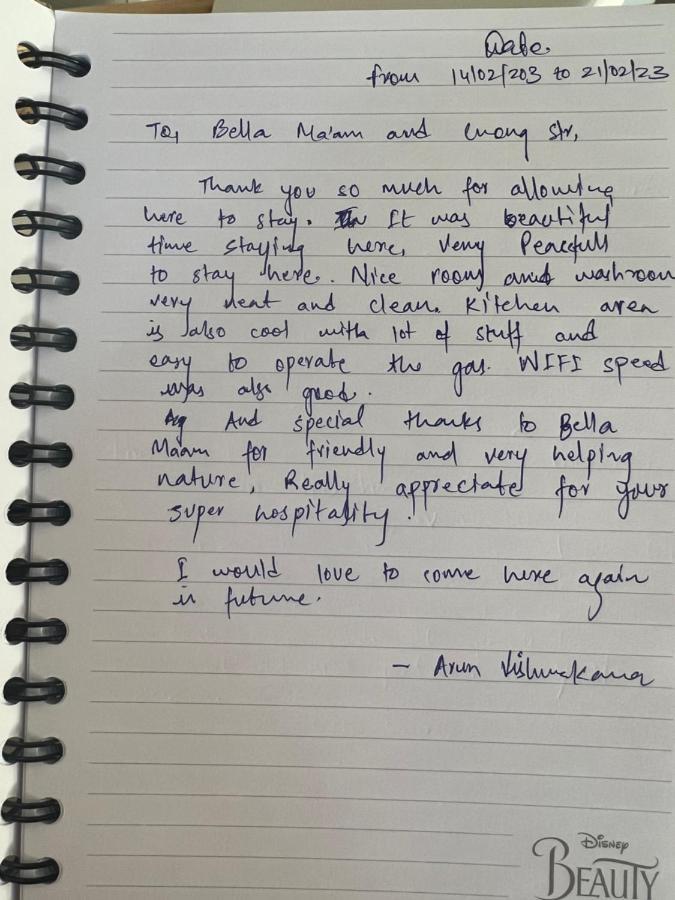 Date.
from 14/02/203 to 21/02/23
To, Bella Ma'am and Cuong Sir,
Thank you so much for allowing
here to stay. It was beautiful
time staying here, Very Peacefull
to stay here. Nice room and washroom
very neat and clean. Kitchen area
is also cool with lot of stuff and
easy to operate the gas. WIFI speed
was also good.
And special thanks to Bella
Maam for friendly and very helping
nature, Really appreciate for your
super hospitality.
I would love to come here again
in future.
- Arun Vishwakarma
Disney
BEAUTY